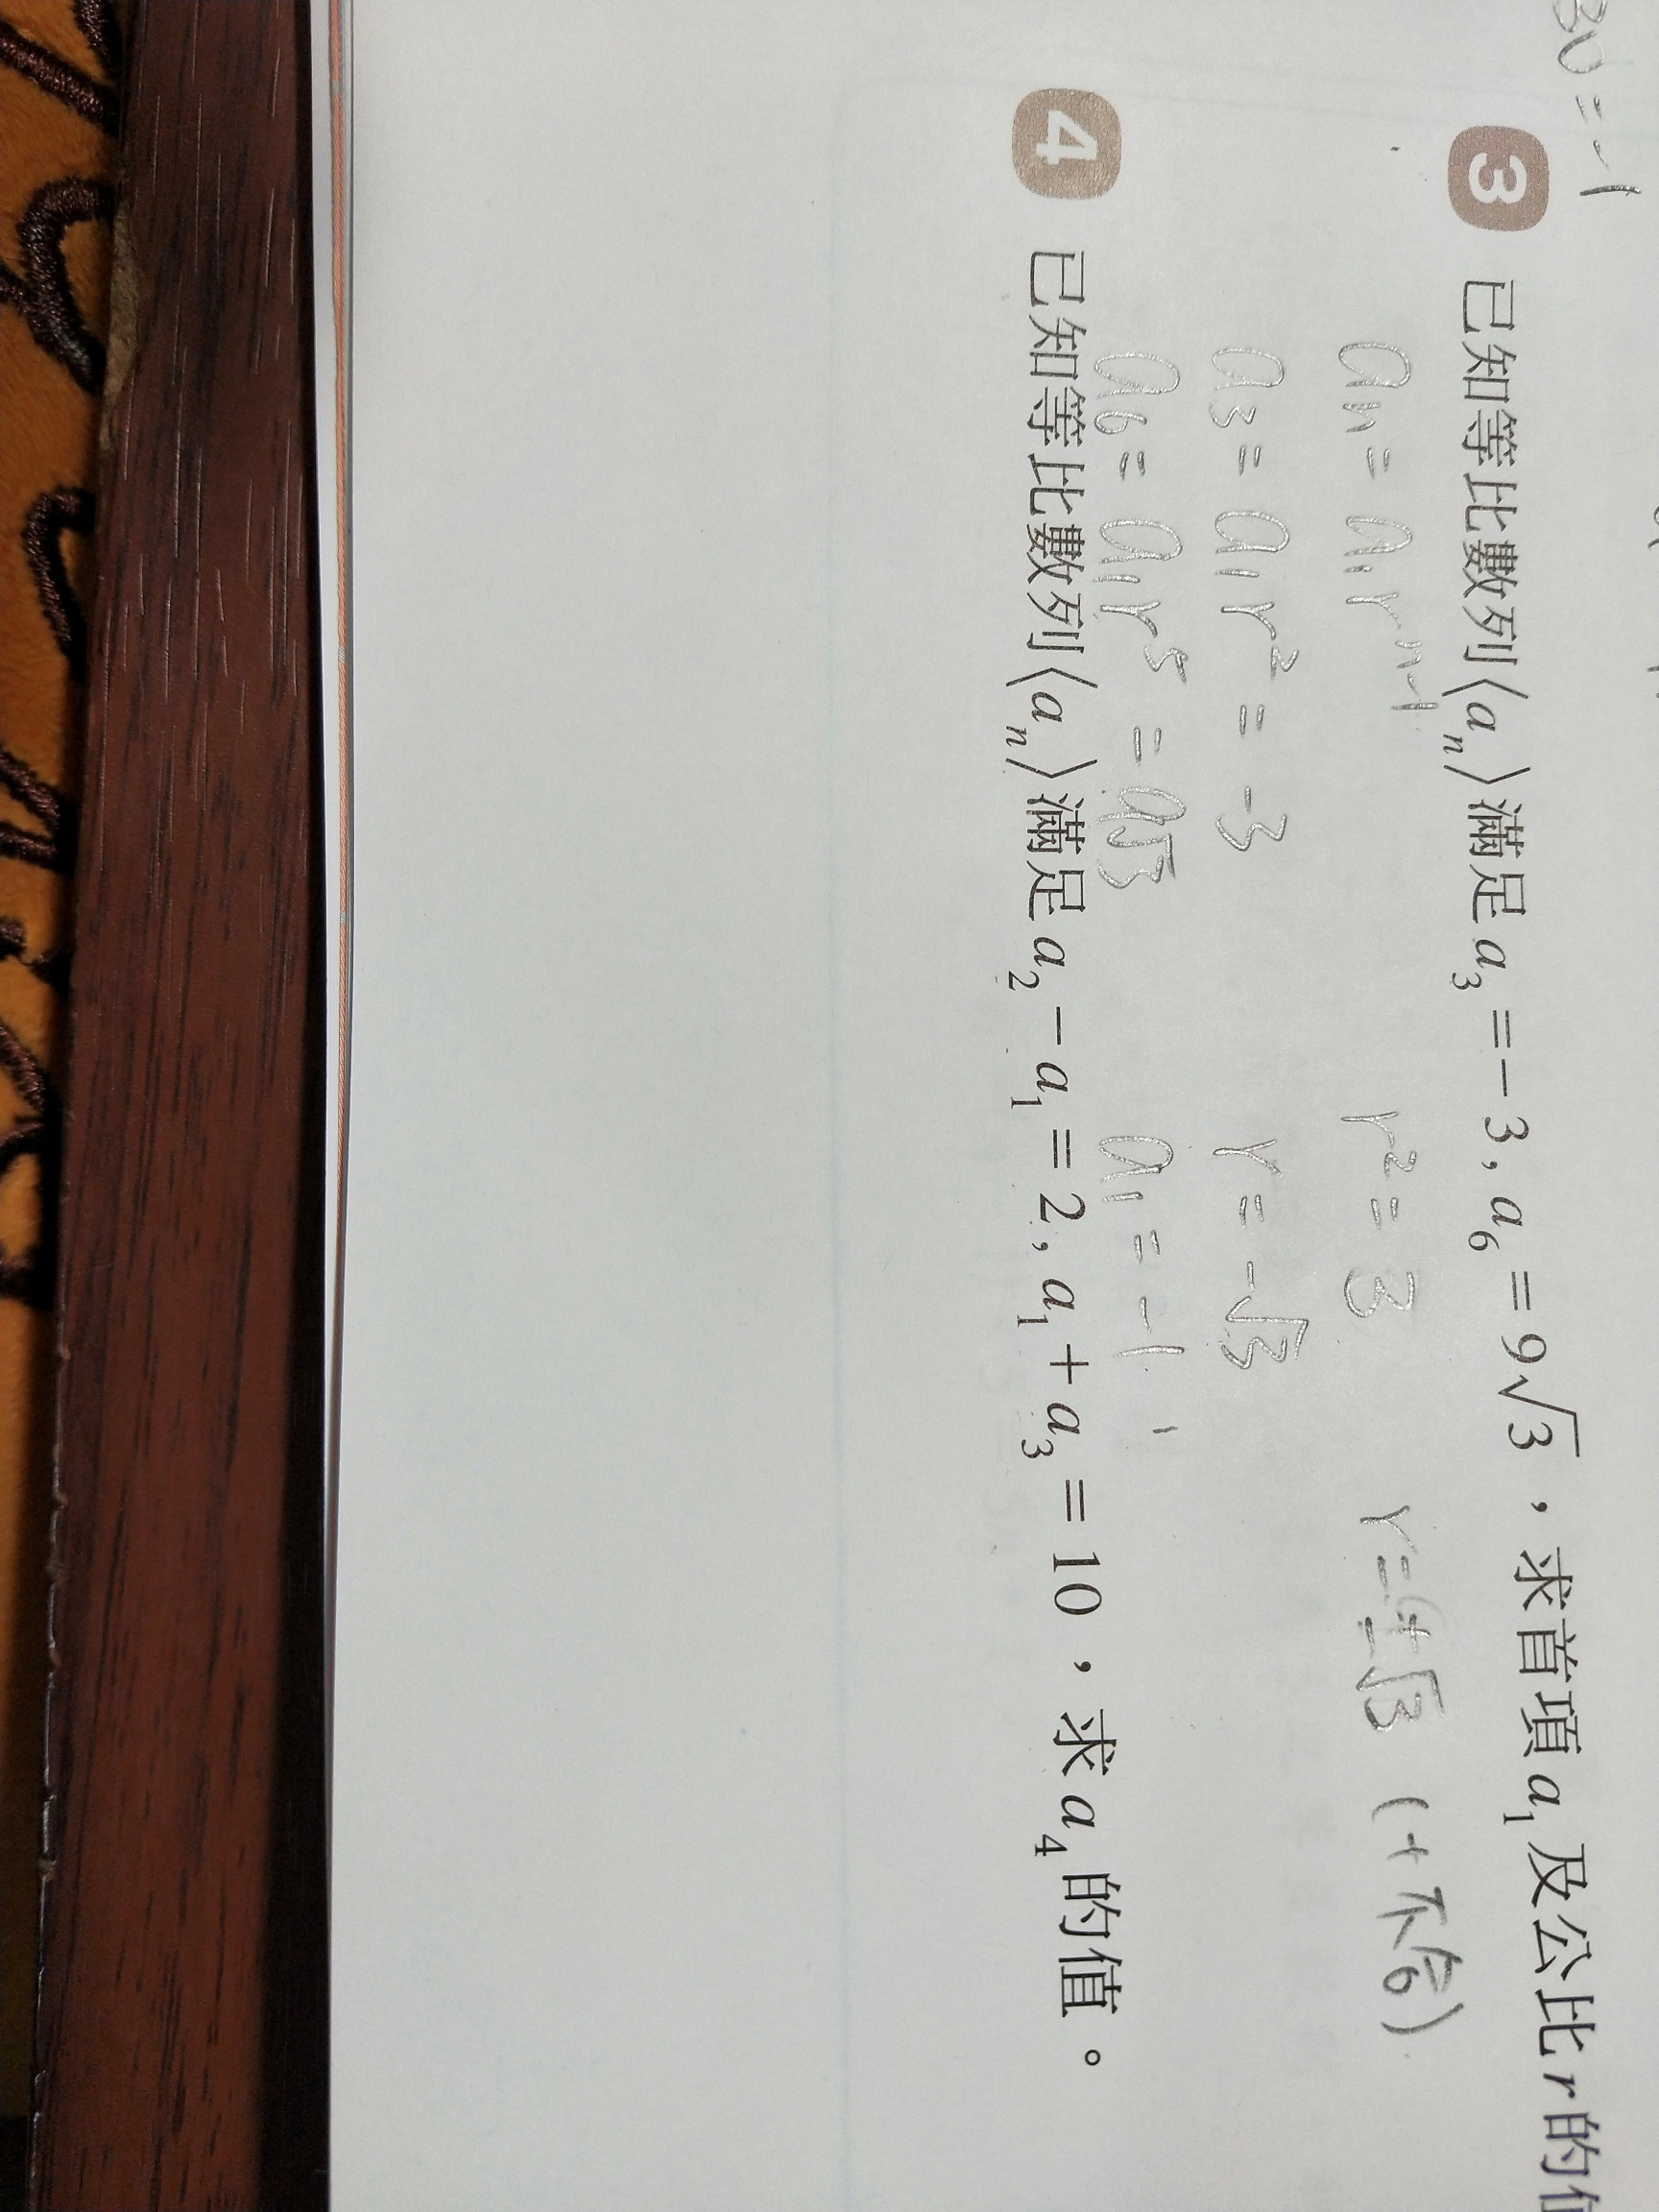 30 = -1
3 已知等比數列⟨aₙ⟩滿足a₃=-3, a₆=9√3，求首項a₁及公比r的值
aₙ = a₁rⁿ⁻¹ r² = 3 r = ±√3 (+不合)
a₃ = a₁r² = -3 r = -√3
a₆ = a₁r⁵ = 9√3 a₁ = -1
4 已知等比數列⟨aₙ⟩滿足a₂-a₁=2, a₁+a₃=10，求a₄的值。